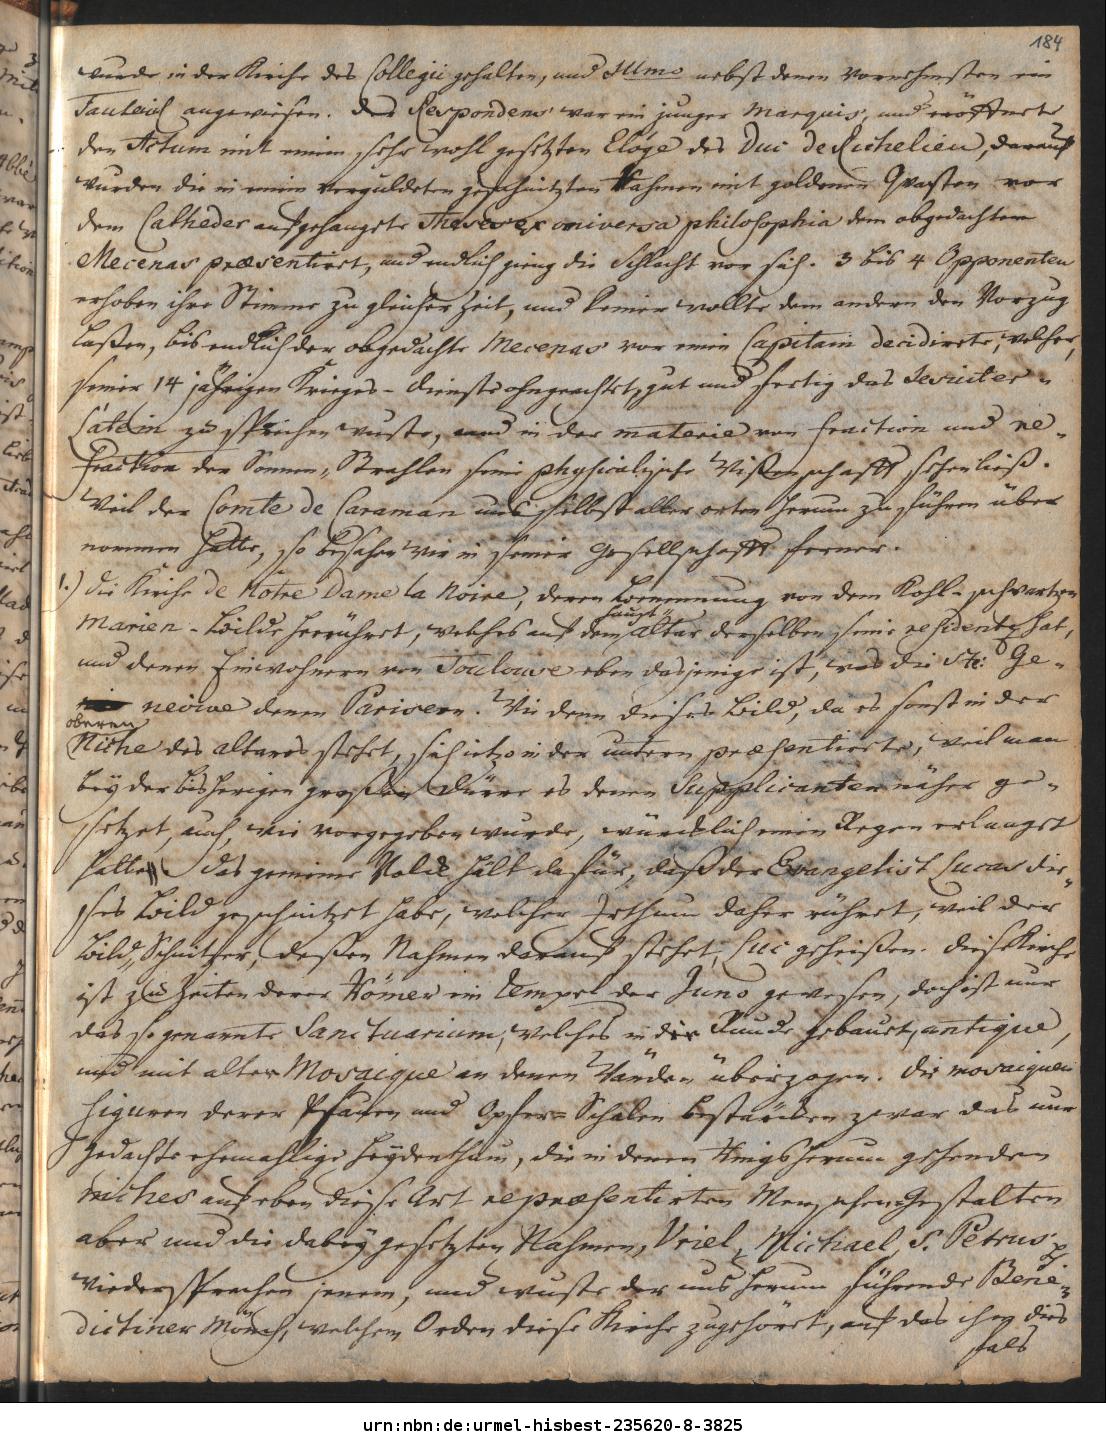 184
wurde in der Kirche des Collegii gehalten, und Illmo nebst denen vornehmsten ein
Fauteuil angewiesen. Der Respondens war ein junger Marquis, und eröffnete
den Actum mit einem sehr wohl gesetzten Eloge des Duc de Richelieu, darauf
wurden die in einem verguldeten geschnitzten Rahmen mit goldenen Qvasten vor
dem Catheder aufgehangete Theses ex universa philosophia dem obgedachten
Mecenas præsentiret, und endlich gieng die Schlacht vor sich. 3 bis 4 Opponenten
erhoben ihre Stimme zu gleicher Zeit, und keiner wollte dem andern den Vorzug
laßen, bis endlich der obgedachte Mecenas vor einen Capitain decidirete, welcher,
seiner 14 jährigen Krieges-Dienste ohngeachtet, gut und fertig das Jesuiter-
Latein zu sprechen wuste, und in der materie von fraction und re-
fraction der Sonnen-Strahlen seine physicalische Wißenschafft sehen ließ.
Weil der Comte de Caraman uns selbst aller orten herum zu führen über
nommen hatte, so besahen wir in seiner Gesellschafft ferner.
1.) die Kirche de Notre Dame la Noire, deren Benennung von dem Kohl-schwartzen
haupt
Marien-Bilde herrühret, welches auf dem altar derselben seine residentz hat,
und denen Einwohnern von Toulouse eben dasjenige ist, was die Ste: Ge-
nevieve denen Parisern. Wie denn dieses Bild, da es sonst in der
oberen
Niche des altares stehet, sich itzo in der untern præsentierte, weil man
bey der bisherigen großen Dürre es denen Supplicanten näher ge-
setzet, auch, wie vorgegeben wurde, würcklich einen Regen erlanget
hatte. Das gemeine Volck hält dafür, daß der Evangelist Lucas die-
ses Bild geschnitzet habe, welcher Irthum daher rühret, weil der
Bild-Schnitzer, deßen Nahmen darauf stehet, Luc geheißen. Diese Kirche
ist zu Zeiten derer Römer ein Tempel der Juno gewesen, doch ist nur
das so genannte Sanctuarium, welches in der Runde gebauet, antique,
und mit alter Mosaique an denen Wänden überzogen. Die mosaiquen
Figuren derer Pfauen und Opfer-Schalen bestärcken zwar das nur
gedachte ehemahlige Heydenthum, die in denen Rings herum gehenden
niches auf eben diese Art repræsentirten Menschen Gestalten
aber und die dabey gesetzten Nahmen, Uriel, Michael, S. Petrus
wiedersprechen jenem, und wuste der uns herum führende Bene-
dictiner Mönch, welchem Orden diese Kirche zugehöret, auf das ihm dies
fals
urn:nbn:de:urmel-hisbest-235620-8-3825